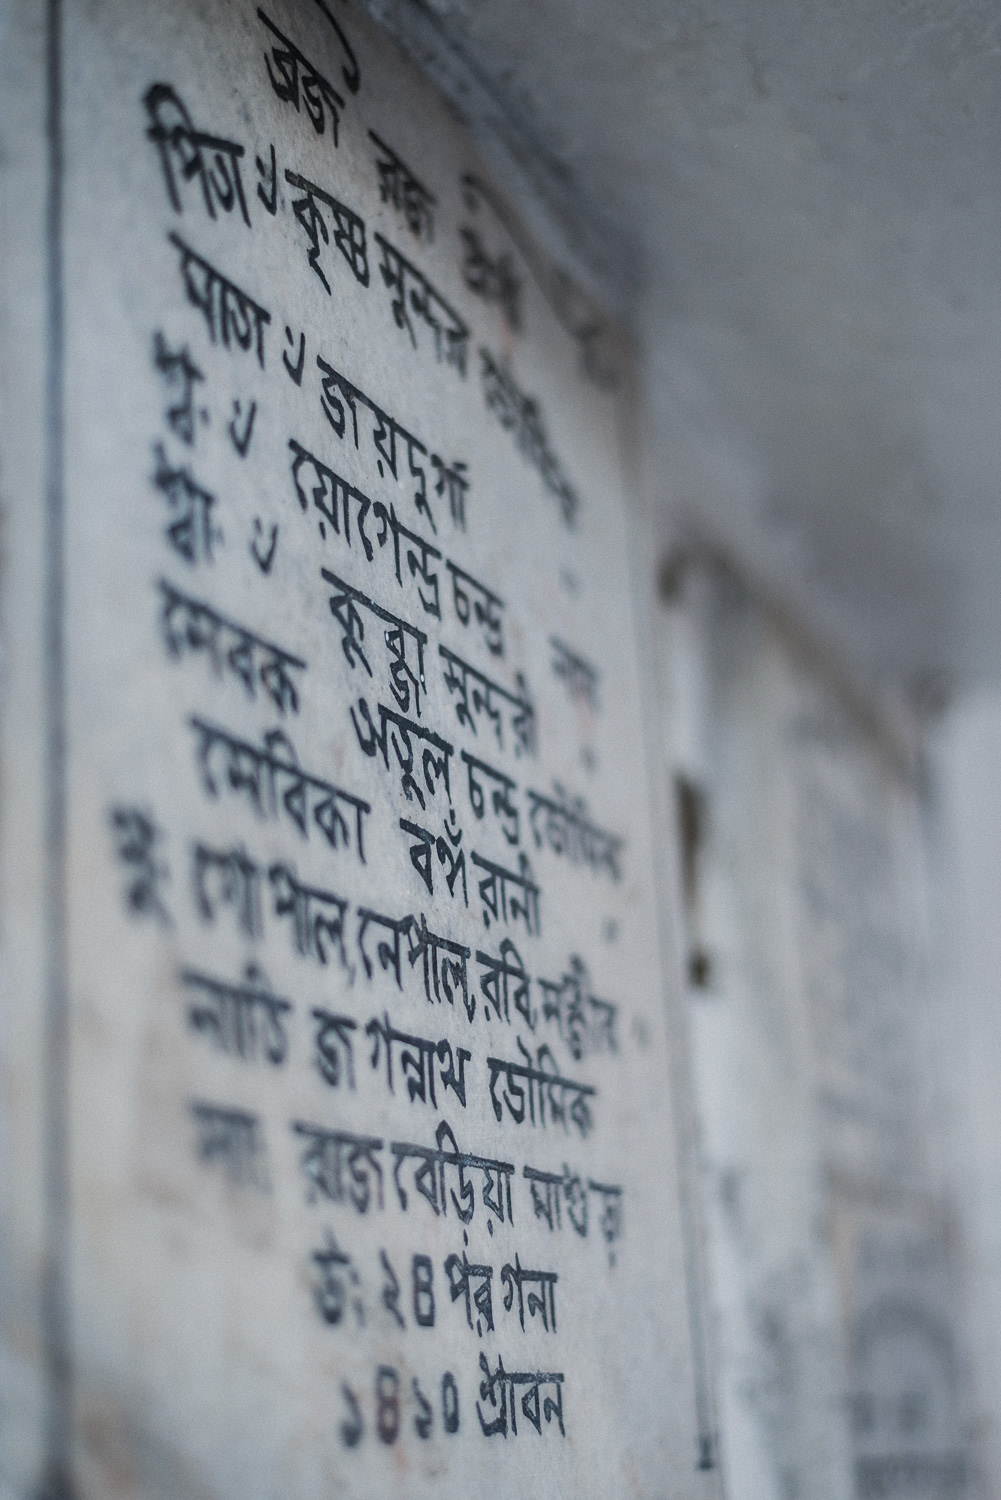 ব্রজ রজ
পিতা ঃ কৃষ্ণ সুন্দর ভৌমিক
মাতা ঃ জয়দুর্গা
ঃ যোগেন্দ্র চন্দ্র
ঃ সুন্দরী
সেবক অতুল চন্দ্র ভৌমিক
সেবিকা রানী
পুঃ গোপাল, নেপাল, রবি,
নাতি জগন্নাথ ভৌমিক
সাং রাজবেড়িয়া
উঃ ২৪ পরগনা
১৪১০ শ্রাবন